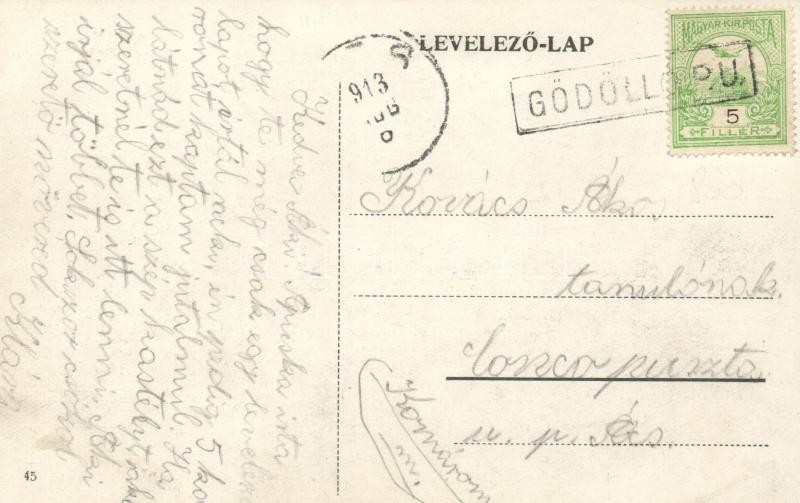 LEVELEZŐ-LAP
MAGYAR KIR. POSTA
5
FILLÉR
GÖDÖLLŐ P.U.
913
AUG
Kovács Ákos
tanulónak.
puszta
u. p. Ács.
Komárom
m.
Kedves Áki! Apuska irta
hogy te még csak egy levelező
lapot irtál neki, én pedig 5 ko
ronát kaptam jutalmul. Ha
látnád ezt a szép kastélyt,
szeretnél te is itt lenni. Áki
irjál többet. Sokszor csókol
szerető nővéred
45